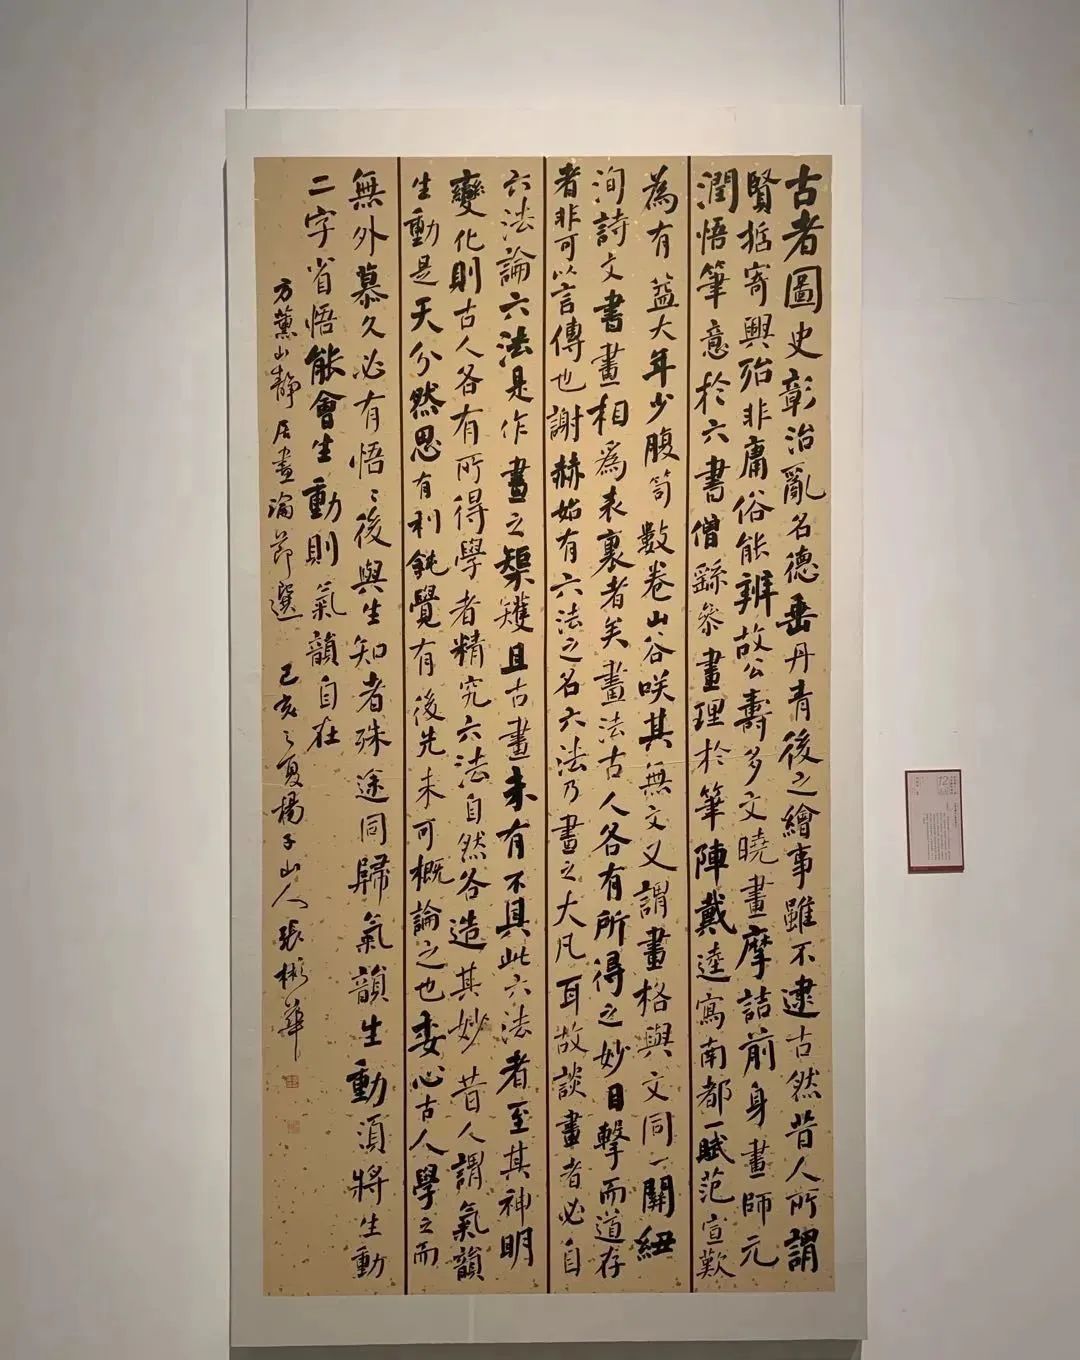 古者圖史彰治亂名德垂丹青後之繪事雖不逮古然昔人所謂
賢哲寄興殆非庸俗能辨故公壽多文曉畫摩詰前身畫師元
潤悟筆意於六書僧繇參畫理於筆陣戴逵寫南都一賦范宣歎
為有益大年少腹笥數卷山谷咲其無文又謂畫格與文同一關紐
洵詩文書畫相為表裏者矣畫法古人各有所得之妙目擊而道存
者非可以言傳也謝赫始有六法之名六法乃畫之大凡耳故談畫者必自
六法論六法是作畫之榘矱且古畫未有不具此六法者至其神明
變化則古人各有所得學者精究六法自然各造其妙昔人謂氣韻
生動是天分然思有利鈍覺有後先未可概論之也委心古人學之而
無外慕久必有悟〻後與生知者殊途同歸氣韻生動湏將生動
二字省悟能會生動則氣韻自在
方薰山靜居畫論節選 己亥之夏楊子山人張彬華